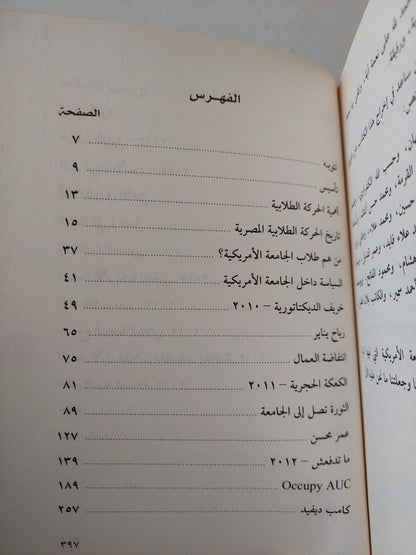 الفهرس
الصفحة
تنويه ٧
تأسيس ٩
أهمية الحركة الطلابية ١٣
تاريخ الحركة الطلابية المصرية ١٥
من هم طلاب الجامعة الأمريكية؟ ٣٧
السياسة داخل الجامعة الأمريكية ٤١
خريف الديكتاتورية – ٢٠١٠ ٤٩
رياح يناير ٦٥
انتفاضة العمال ٧٥
الكعكة الحجرية – ٢٠١١ ٨١
الثورة تصل إلى الجامعة ٨٩
عمر محسن ١٢٧
ما تدفعش – ٢٠١٢ ١٣٩
Occupy AUC ١٨٩
كامب ديفيد ٢٥٧
٣٩٧